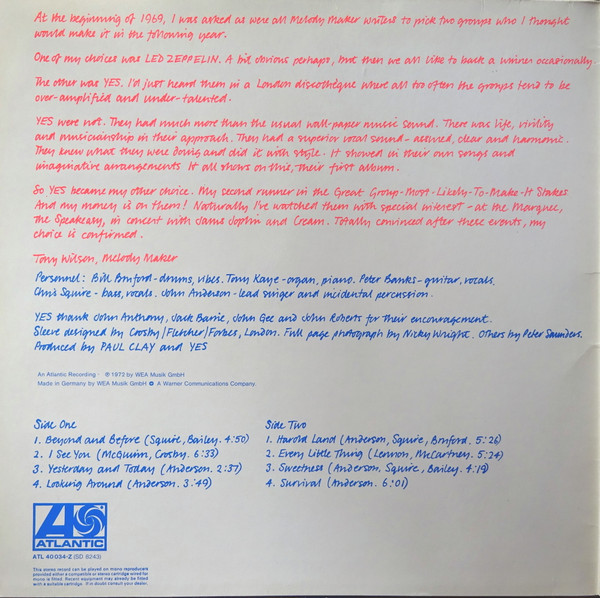 At the beginning of 1969, I was asked as were all Melody Maker writers to pick two groups who I thought
would make it in the following year.
One of my choices was LED ZEPPELIN. A bit obvious perhaps, but then we all like to back a winner occasionally.
The other was YES. I'd just heard them in a London discothèque where all too often the groups tend to be
over-amplified and under-talented.
YES were not. They had much more than the usual wall-paper music sound. There was life, virility
and musicianship in their approach. They had a superior vocal sound - assured, clear and harmonic.
They knew what they were doing and did it with style. It showed in their own songs and
imaginative arrangements It all shows on this, their first album.
So YES became my other choice. My second runner in the Great Group-Most-Likely-To-Make-It Stakes
And my money is on them! Naturally I've watched them with special interest - at the Marquee,
the Speakeasy, in concert with Janis Joplin and Cream. Totally convinced after these events, my
choice is confirmed.
Tony Wilson, Melody Maker
Personnel: Bill Bruford - drums, vibes. Tony Kaye - organ, piano. Peter Banks - guitar, vocals.
Chris Squire - bass, vocals. John Anderson - lead singer and incidental percussion.
YES thank John Anthony, Jack Barrie, John Gee and John Roberts for their encouragement.
Sleeve designed by Crosby/Fletcher/Forbes, London. Full page photograph by Nicky Wright. Others by Peter Saunders.
Produced by PAUL CLAY and YES
An Atlantic Recording · ℗ 1972 by WEA Musik GmbH
Made in Germany by WEA Musik GmbH A Warner Communications Company.
Side One
1. Beyond and Before (Squire, Bailey. 4:50)
2. I See You (McGuinn, Crosby. 6:33)
3. Yesterday and Today (Anderson. 2:37)
4. Looking Around (Anderson. 3:49)
Side Two
1. Harold Land (Anderson, Squire, Bruford. 5:26)
2. Every Little Thing (Lennon, McCartney. 5:24)
3. Sweetness (Anderson, Squire, Bailey. 4:19)
4. Survival (Anderson. 6:01)
ATLANTIC
ATL 40 034-Z (SD 8243)
This stereo record can be played on mono reproducers
provided either a compatible or stereo cartridge wired for
mono is fitted. Recent equipment may already be fitted
with a suitable cartridge. If in doubt consult your dealer.